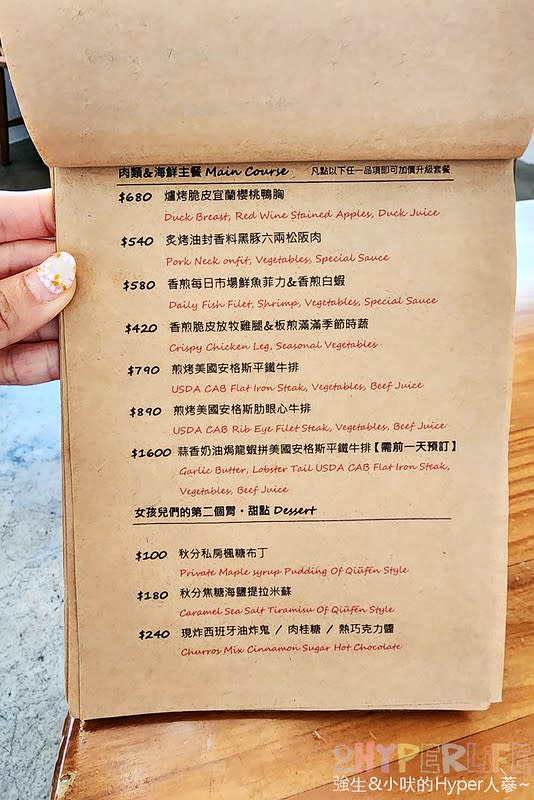 肉類&海鮮主餐 Main Course 凡點以下任一品項即可加價升級套餐
$680 爐烤脆皮宜蘭櫻桃鴨胸
Duck Breast, Red Wine Stained Apples, Duck Juice
$540 炙烤油封香料黑豚六兩松阪肉
Pork Neck onfit, Vegetables, Special Sauce
$580 香煎每日市場鮮魚菲力&香煎白蝦
Daily Fish Filet, Shrimp, Vegetables, Special Sauce
$420 香煎脆皮放牧雞腿&板煎滿滿季節時蔬
Crispy Chicken Leg, Seasonal Vegetables
$790 煎烤美國安格斯平鐵牛排
USDA CAB Flat Iron Steak, Vegetables, Beef Juice
$890 煎烤美國安格斯肋眼心牛排
USDA CAB Rib Eye Filet Steak, Vegetables, Beef Juice
$1600 蒜香奶油焗龍蝦拼美國安格斯平鐵牛排【需前一天預訂】
Garlic Butter, Lobster Tail USDA CAB Flat Iron Steak,
Vegetables, Beef Juice
女孩兒們的第二個胃・甜點 Dessert
$100 秋分私房楓糖布丁
Private Maple syrup Pudding Of Qiūfēn Style
$180 秋分焦糖海鹽提拉米蘇
Caramel Sea Salt Tiramisu Of Qiūfēn Style
$240 現炸西班牙油炸鬼 / 肉桂糖 / 熱巧克力醬
Churros Mix Cinnamon Sugar Hot Chocolate
2HYPERLIFE
強生&小吠的Hyper人蔘~